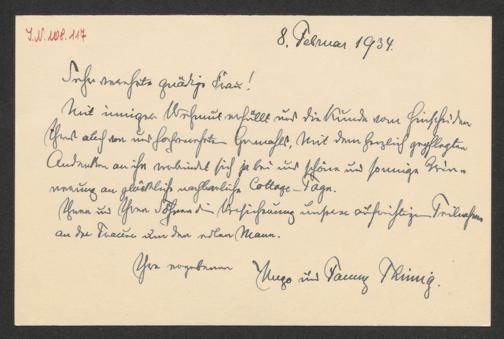 I.N. 108.117
8. Februar 1934.
Sehr verehrte gnädige Frau!
Mit inniger Wehmut erfüllt uns die Kunde vom Hinscheiden
Ihres auch von uns hochverehrten Gemahls. Mit dem herzlich gepflegten
Andenken an ihn verbindet sich ja bei uns schöne und sonnige Erin-
nerung an glückliche nachbarliche Cottage-Tage.
Ihnen und Ihren Söhnen die Versicherung unserer aufrichtigen Teilnahme
an der Trauer um den edlen Mann.
Ihre ergebenen Hugo und Fanny Thimig.